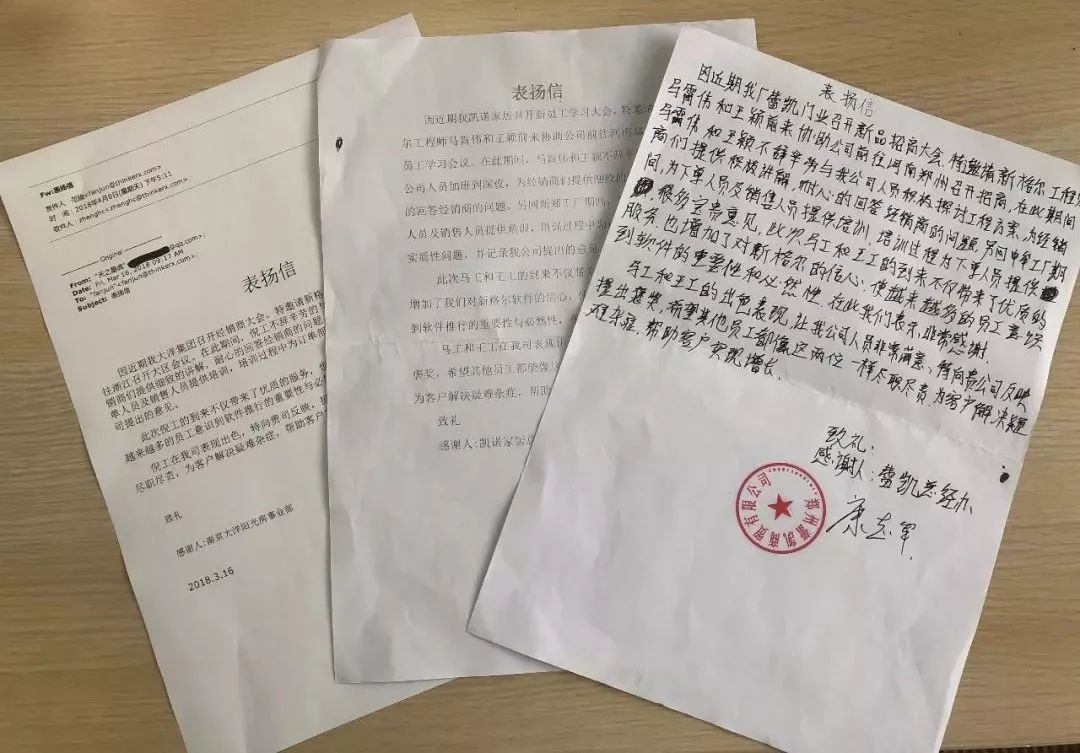 Fw:表扬信
发件人: 范骏<fanjun@thinkerx.com>
时 间: 2018年4月8日(星期天) 下午5:11
收件人: zhenghc<zhenghc@thinkerx.com>;
Original
From: "天之聖痕"
@qq.com>;
Date: Fri, Mar 16, 2018 09:17 AM
To: "fanjun"<fanjun@thinkerx.com>;
Subject: 表扬信
表扬信
因近期我大洋集团召开经销商大会，特邀请新格
往浙江召开大区会议。在此期间，倪工不辞辛劳的
销商们提供细致的讲解，耐心的回答经销商的问题
单人员及销售人员提供培训，培训过程中为订单部
司提出的意见。
此次倪工的到来不仅带来了优质的服务，
越来越多的员工意识到软件推行的重要性与必
倪工在我司表现出色，特向贵司反映，提
尽职尽责，为客户解决疑难杂症，帮助客户
致礼
感谢人:南京大洋阳光房事业部
2018.3.16
表扬信
因近期我凯诺家居召开新员工学习大会，特邀
尔工程师马霄伟和王颖前来协助公司前往河南
员工学习会议。在此期间，马霄伟和王颖不辞辛
公司人员加班到深夜，为经销商们提供细致的
的回答经销商的问题。另间前郑工厂期间，
人员及销售人员提供培训，培训过程中为
实质性问题，并记录我公司提出的意见
此次马工和王工的到来不仅带
增加了我们对新格尔软件的信心，
到软件推行的重要性与必然性，
马工和王工在我司表现
褒奖，希望其他员工都能像
为客户解决疑难杂症，帮助
致礼
感谢人:凯诺家居总
表扬信
因近期我厂蕾凯门业召开新品招商大会，特邀请新格尔工程师
马霄伟和王颖前来协助公司前往河南郑州召开招商，在此期间
马霄伟和王颖不辞辛劳与我公司人员积极探讨工程方案，为经销
商们提供积极讲解，耐心的回答经销商的问题，另间申窄工厂期
间，为下单人员及销售人员提供培训，培训过程为下单人员提供
很多宝贵意见，此次马工和王工的到来不仅带来了优质的
服务，也增加了对新格尔的信心，使越来越多的员工意识
到软件的重要性和必然性，在此我们表示非常感谢
马工和王工的出色表现，让我公司人员非常满意，特向贵公司反映
提出褒奖，希望其他员工都像这两位一样尽职尽责，为客户解决疑
难杂症，帮助客户实现增长。
致礼:
感谢人: 蕾凯总经办
康志军
郑州蕾凯商贸有限公司